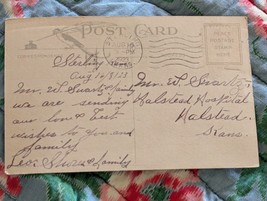 POST CARD
PLACE
POSTAGE
STAMP
HERE
Sterling Kans
Aug
Mr. W. Swartz & family
we are sending
our love & best
wishes to you and
family
Leo Shore & family
Mr. W. Swartz
Halstead Hospital
Halstead.
Kans.